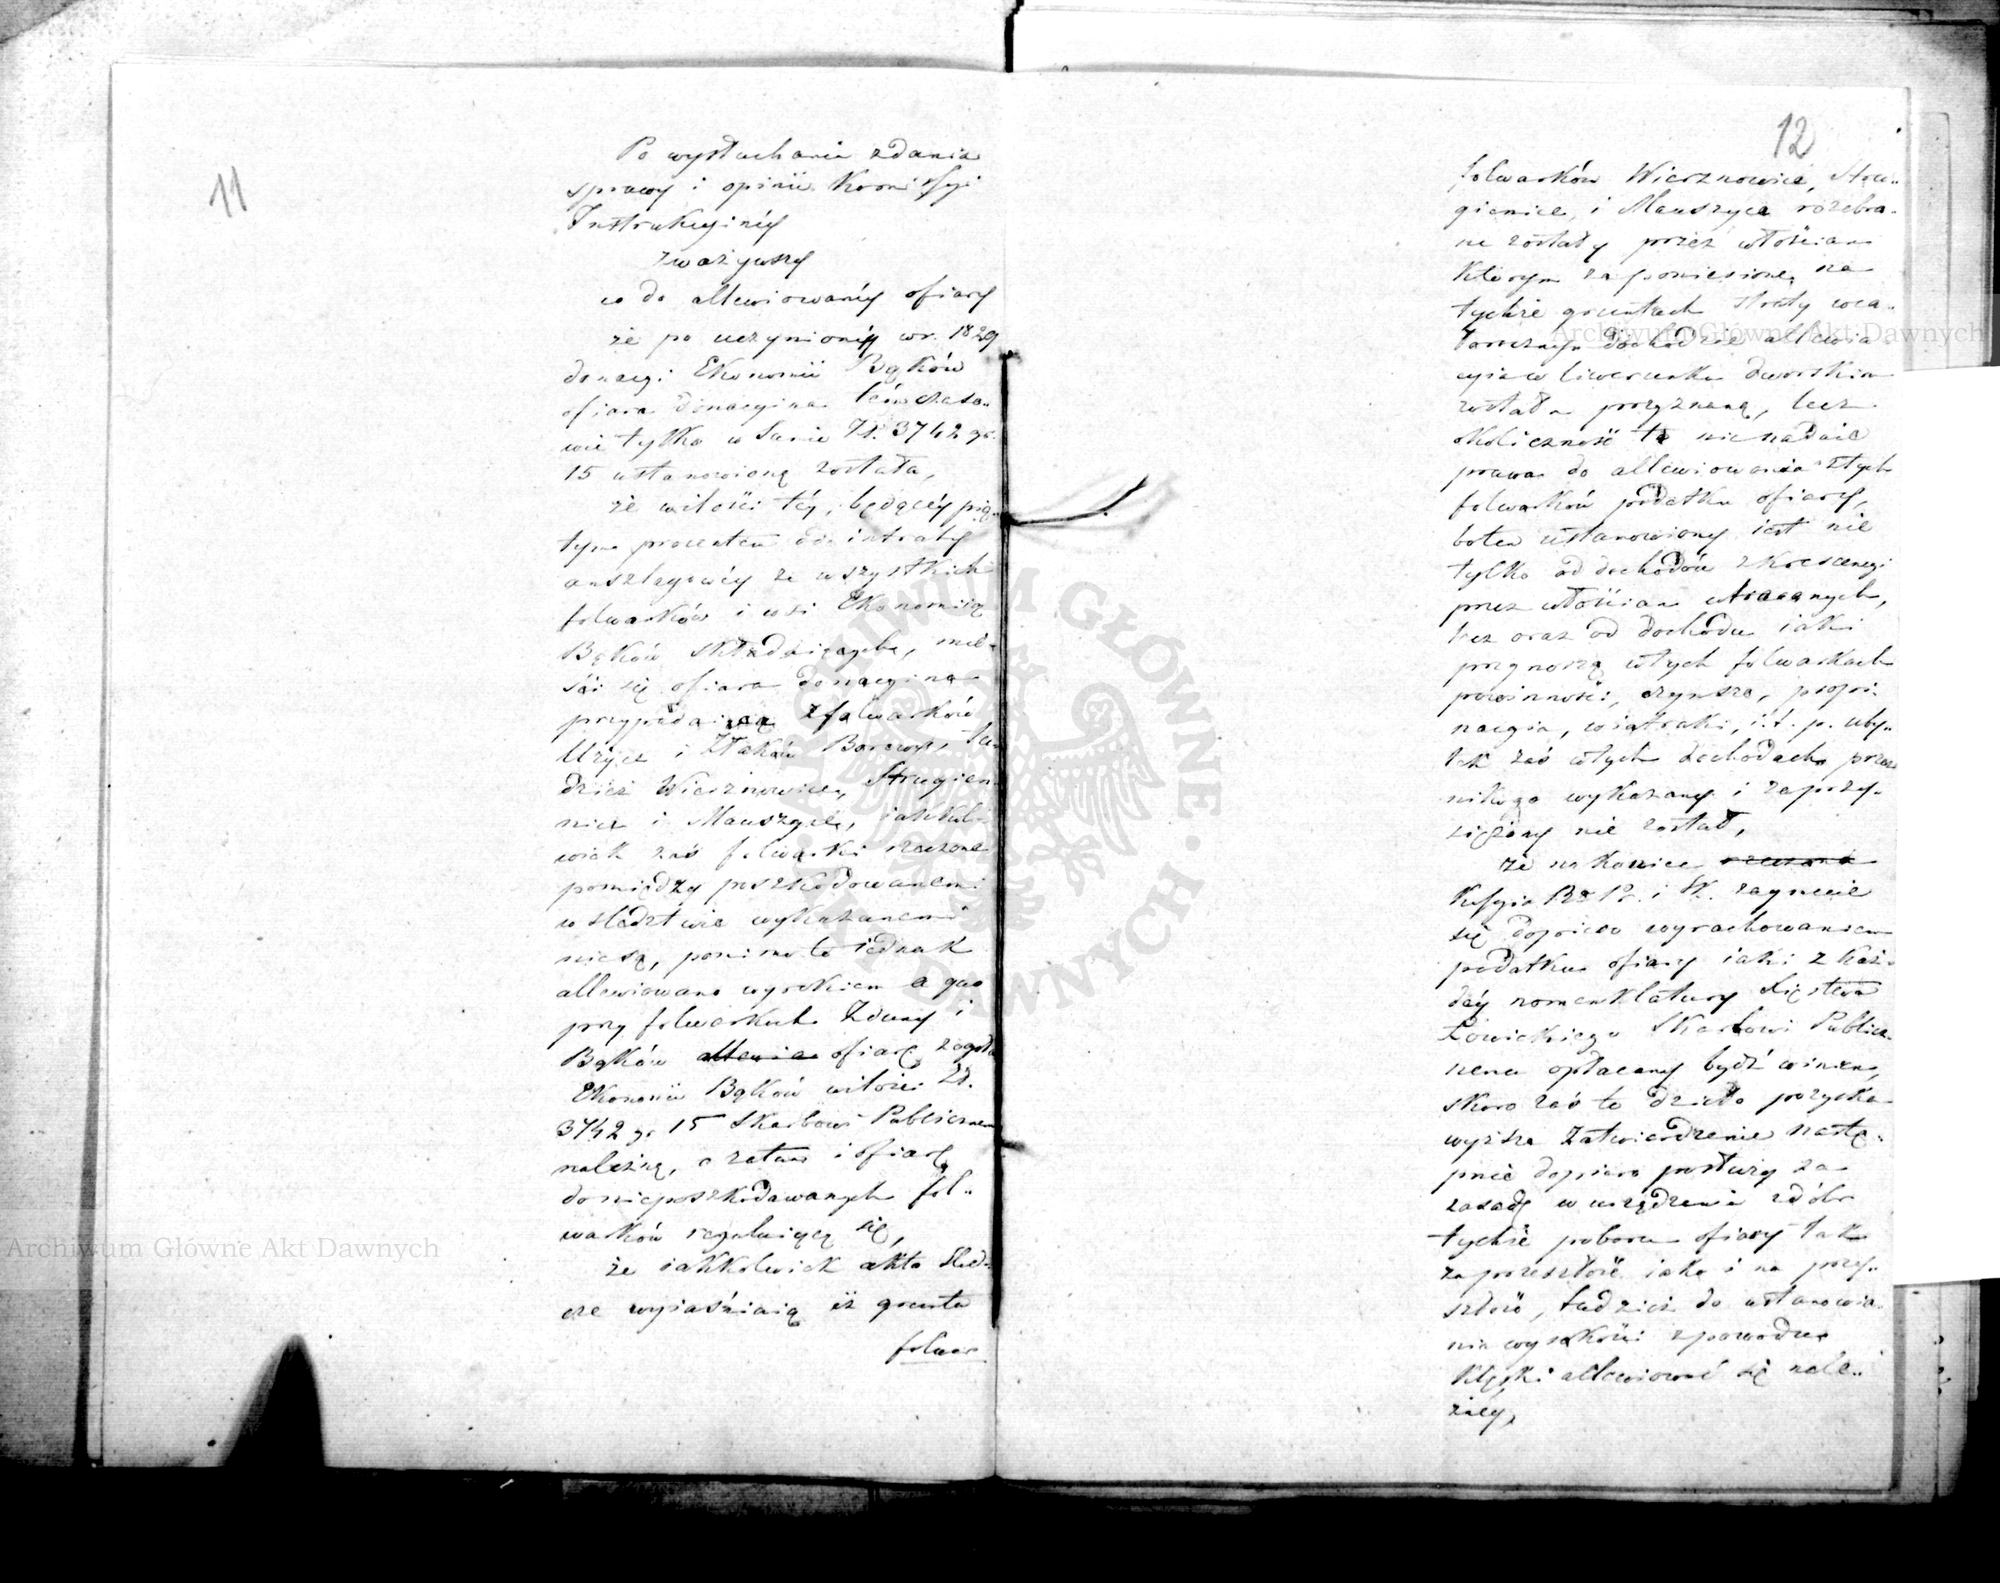 11
Po wysłuchaniu zdania
sprawy i opinii Kommissyi
Instrukcyinéy
zważywszy
co do allewiowanéy ofiary
że po uczynionéy w r. 1829
donacyi Ekonomii Bąków
ofiara donacyina tém czaso„
wie tylko w Sumie Zł. 3742 gr.
15 ustanowioną została,
że w ilości téy, będącéy pią„
tym procentem od intraty
anszlagowéy ze wszystkich
folwarków i wsi Ekonomiią
Bąków składaiących, mie„
ści się ofiara donacyina
przypadaiąca z folwarków
Urzyce i Złaków Borowy, tu„
dzież Wierznowice, Strugien„
nice i Mauszyce, iakkol„
wiek zaś folwarki rzeczone
pomiędzy poszkodowanemi
w śledztwie wykazanemi
niesą, pomimo to iednak
allewiowano wyrokiem a quo
przy folwarkach Zduny i
Bąków allewia ofiarę z ogółu
Ekonomii Bąków w ilości Zł.
3742 gr 15 Skarbowi Publicznemu
należną, a zatem i ofiarę
do niepposzkodowanych fol„
warków reguluiącą się,
że iakkolwiek akta śled„
cze wyiaśniaią iż grunta
folwar
12
folwarków Wierznowice, Stru„
gienice, i Mauszyce rozebra„
ne zostały przez włościan
którym za poniesione na
tychże gruntach straty w ca„
łorocznym dochodzie allewia
cyia w liwerunku dworskim
została przyznaną, lecz
okoliczność ta nie nadaie
prawa do allewiowania z tych
folwarków podatku ofiary,
bo ten ustanowiony iest nie
tylko od dochodów z krescencyi
przez włościan utraconych,
lecz oraz od dochodu iaki
przynoszą w tych folwarkach
powinności, czynsze, propi„
nacyia, wiatraki, i. t. p. uby„
tek zaś w tych dochodach przez
nikogo wykazany i zaprzy„
siężony nie został,
że na koniec rzeczona
Kommissya Rz. Pr. i Sk. zaymuie
się dopiero wyrachowaniem
podatku ofiary iaki z każ„
déy nomenklatury Xięstwa
Łowickiego Skarbowi Publicz„
nemu opłacany bydź winien,
skoro zaś to dzieło pozyska
wyższe Zatwierdzenie nastę„
pnie dopiero posłuży za
zasadę w urządzeniu z dóbr
tychże poboru ofiary tak
za przeszłość iako i na przy„
szłość, tudzież do ustanowie„
nia wysokości z powodu
klęski allewiować się nale„
żącéy,
Archiwum Główne Akt Dawnych
Archiwum Główne Akt Dawnych
ARCHIWUM GŁÓWNE · AKT DAWNYCH ·